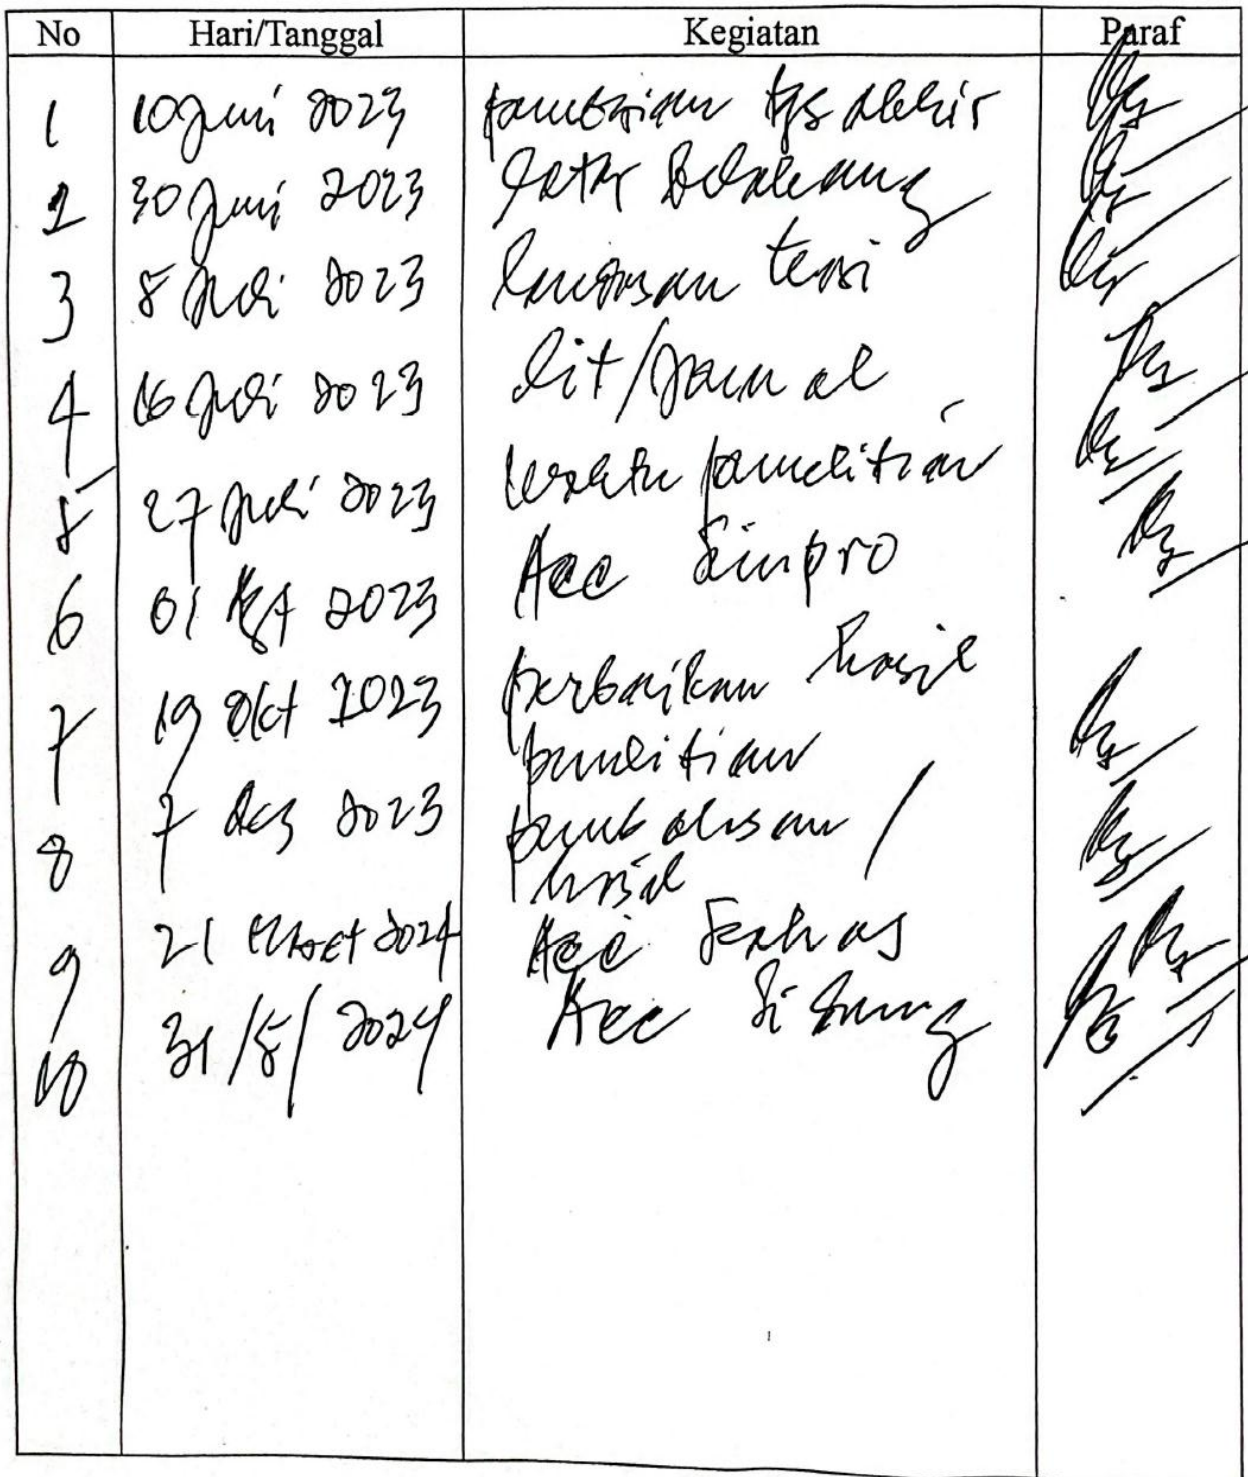 No Hari/Tanggal Kegiatan Paraf
1 10 Juni 2023 pemberian tgs akhir
2 30 Juni 2023 Latar Belakang
3 8 Juli 2023 landasan teori
4 16 Juli 2023 lit/jurnal
5 27 Juli 2023 waktu penelitian
6 01 Agt 2023 Acc Sinpro
7 19 Okt 2023 perbaikan hasil
penelitian
8 7 des 2023 pembahasan /
hasil
9 21 Maret 2024 Acc Semhas
10 31/5/2024 Acc Sidang